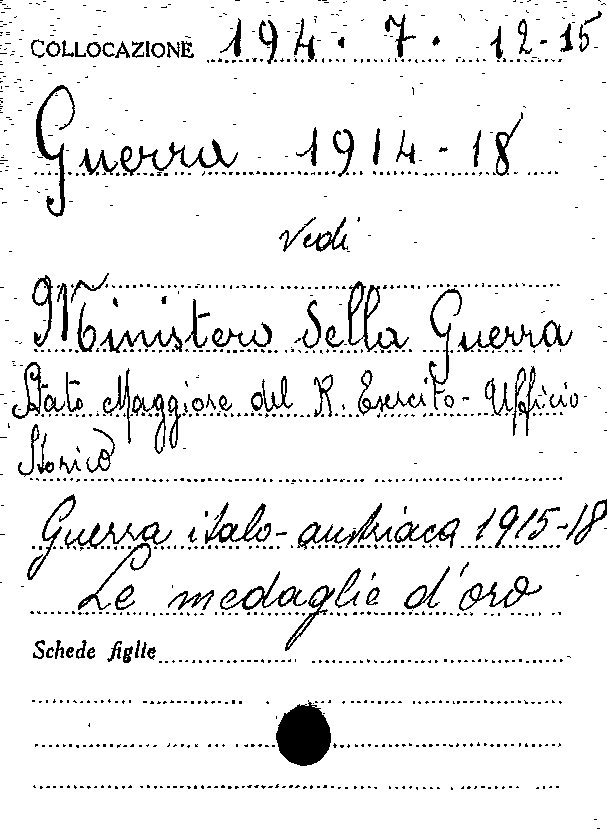 COLLOCAZIONE 194. 7. 12-15
Guerra 1914-18
Vedi
Ministero della Guerra
Stato Maggiore del R. Esercito - Ufficio
Storico
Guerra italo-austriaca 1915-18
Le medaglie d'oro
Schede figlie